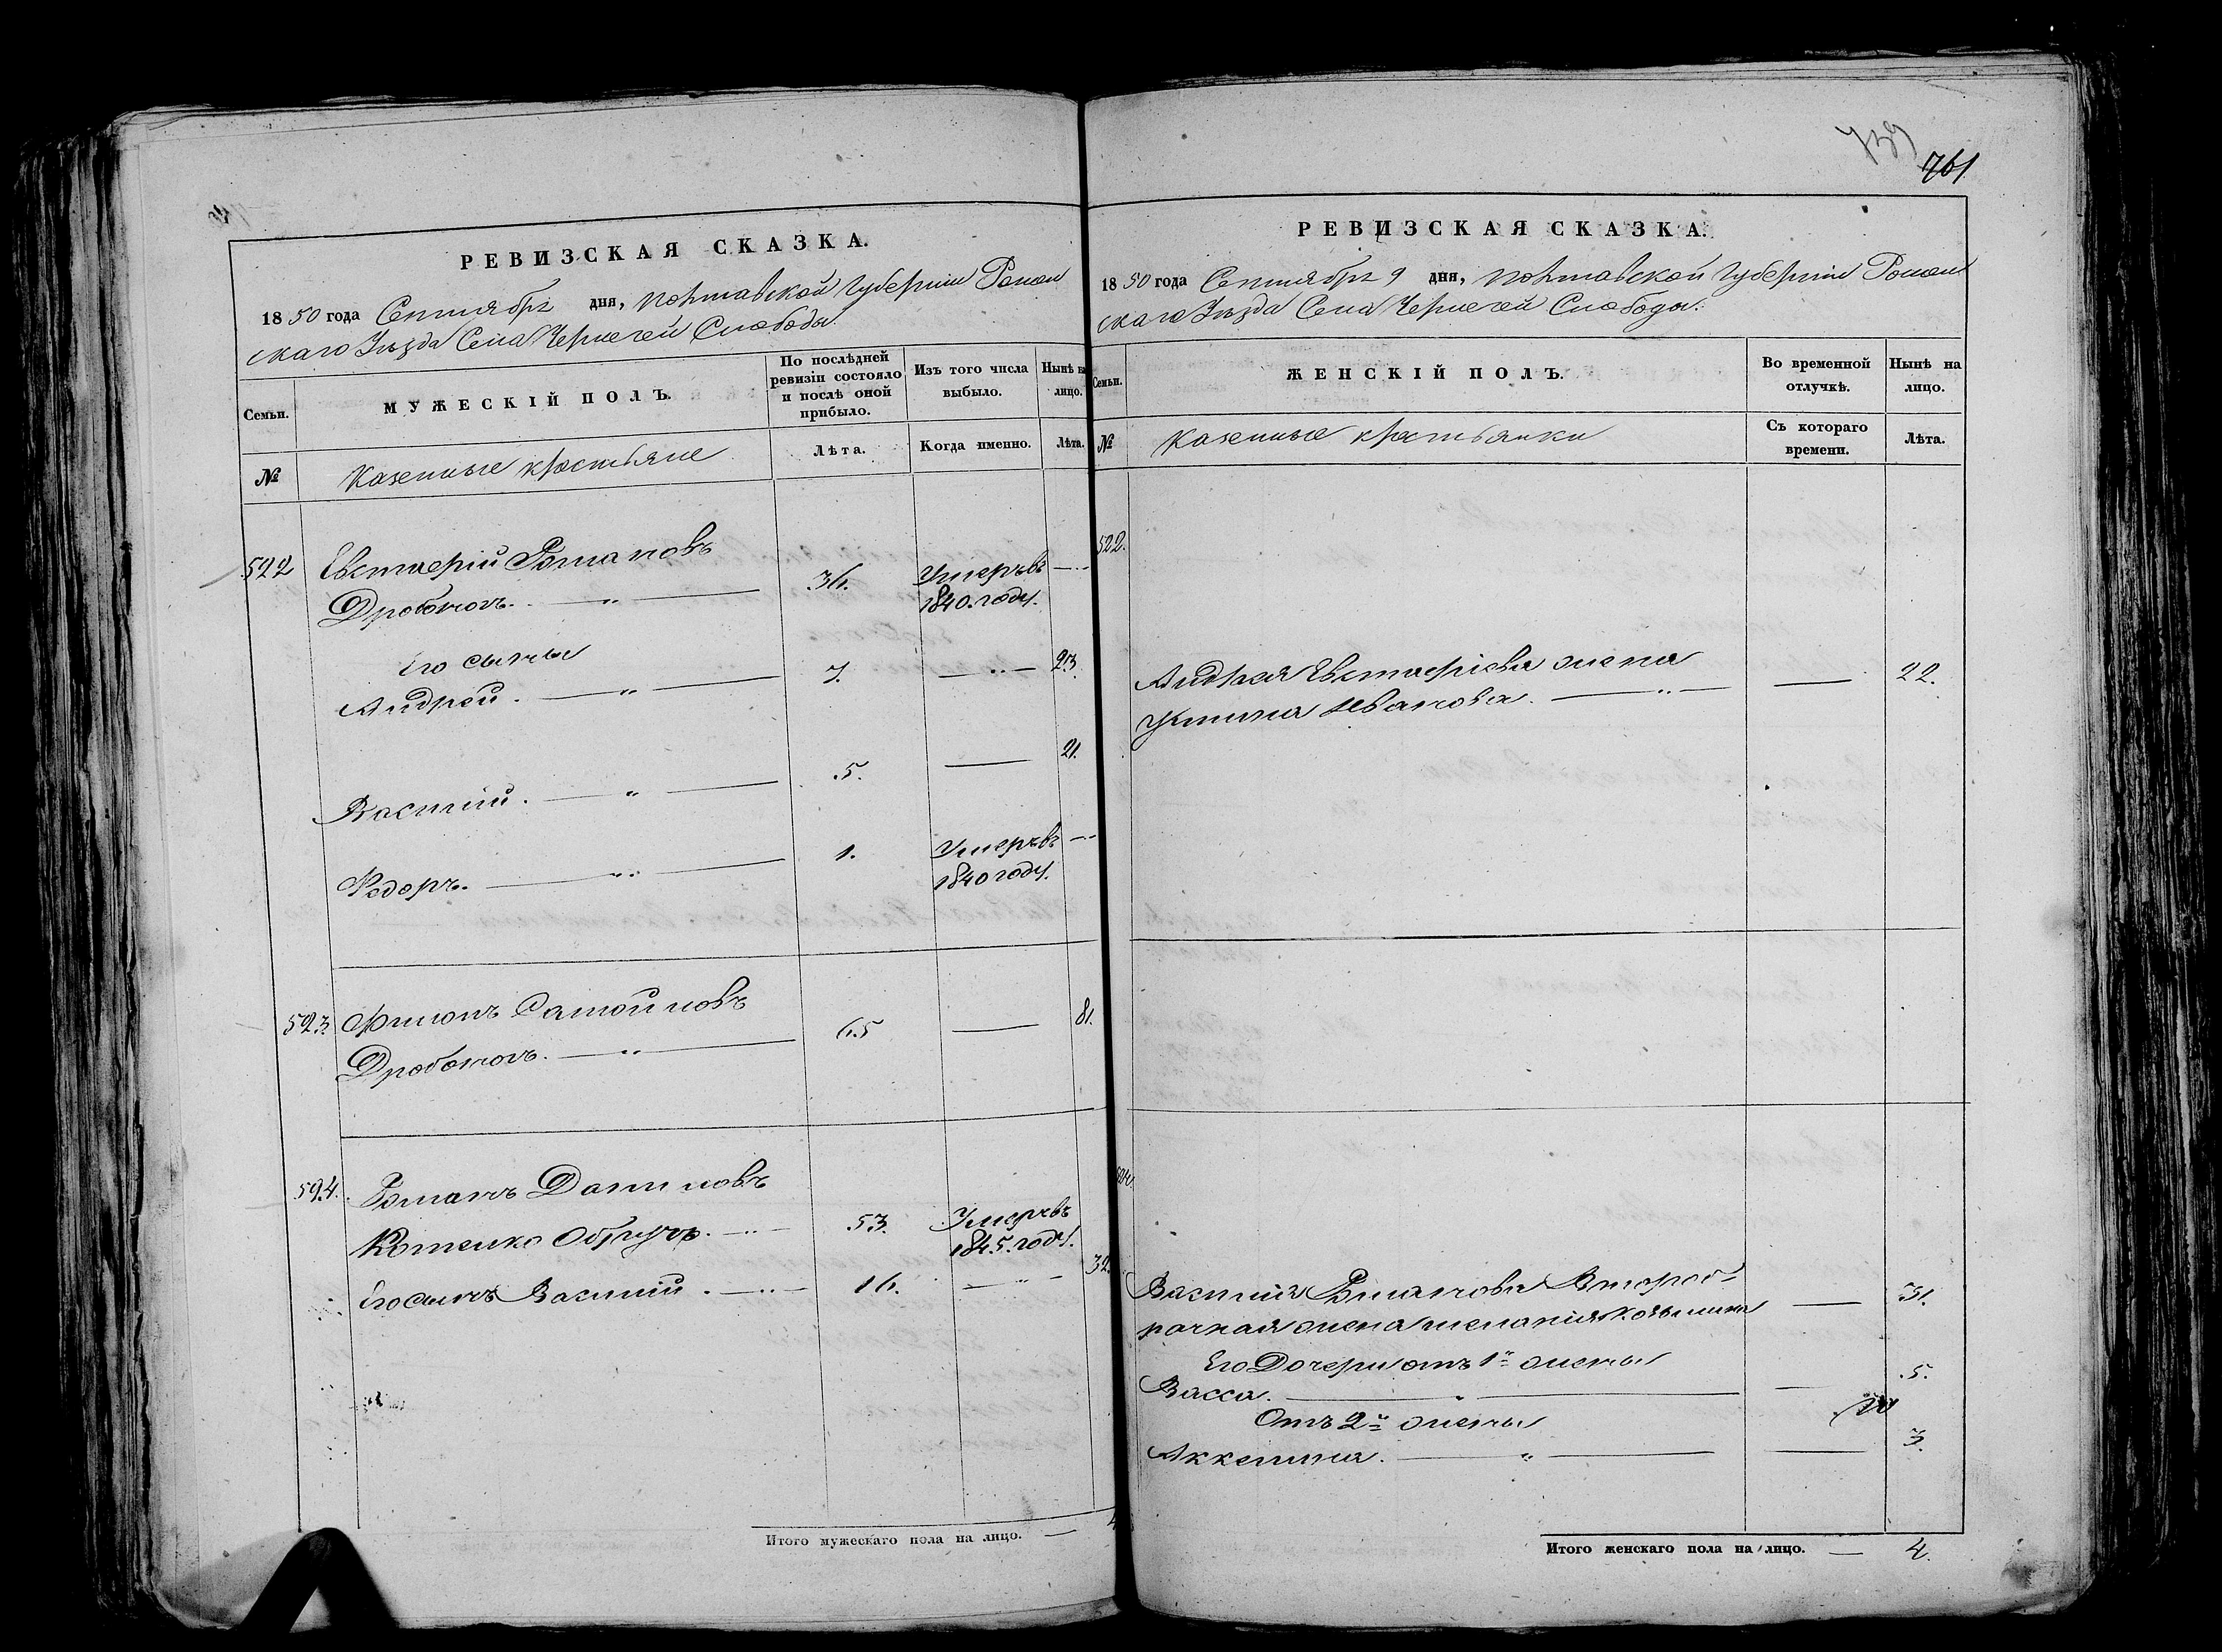 РЕВИЗСКАЯ СКАЗКА.
1850 года Сентября дня, Полтавской Губернии Ромен
скаго Уѣзда Села Чернечей Слободы.
Семьи.
МУЖЕСКІЙ ПОЛЪ.
По послѣдней ревизіи состояло и послѣ оной прибыло.
Изъ того числа выбыло.
Нынѣ на лицо.
№
Казенные крестьяне
Лѣта.
Когда именно.
Лѣта.
522 Евстафій Романовъ
Дроботовъ. 36. Умеръ въ
1840. году.
Его сыны
Андрей. 7. 23.
Василій. 5. 21.
Федоръ. 1. Умеръ въ
1840 году.
523. Филипъ Самойловъ
Дроботовъ. 65 81.
524. Романъ Даниловъ
Котенко Обручъ. 53. Умеръ въ
1845. году.
Его сынъ Василій. 16. 32.
Итого мужескаго пола на лицо. 4
739
761
РЕВИЗСКАЯ СКАЗКА.
1850 года Сентября 9 дня, Полтавской Губерніи Ромен
скаго Уѣзда Села Чернечей Слободы.
Семьи.
ЖЕНСКІЙ ПОЛЪ.
Во временной отлучкѣ.
Нынѣ на лицо.
№
Казенные крестьянки
Съ котораго времени.
Лѣта.
522.
Андрея Евстафіева жена
Устина Иванова. 22.
524.
Василія Романова Второб-
рачная жена Меланія 31.
Его Дочери отъ 1й жены
Васса. 5.
Отъ 2й жены
Аккелина. 3.
Итого женскаго пола на лицо. 4.